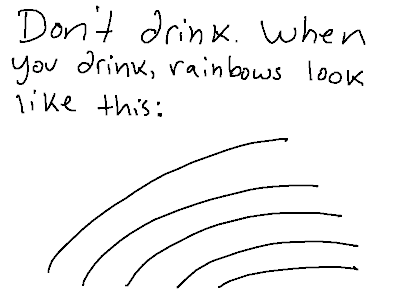 Don't drink. When
you drink, rainbows look
like this: